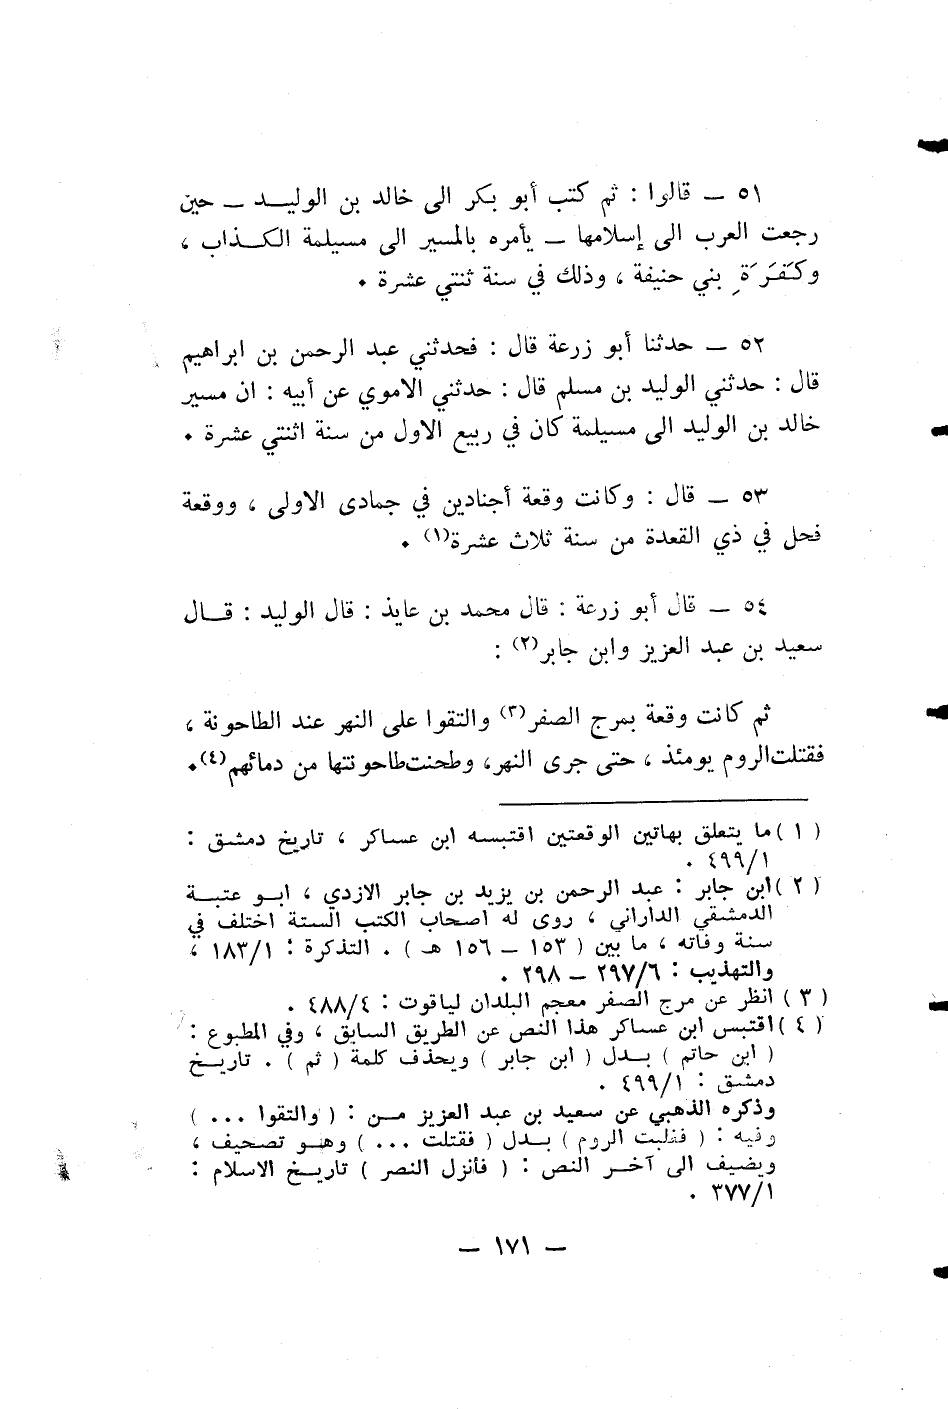 ٥١ ــ قالوا : ثم كتب أبو بكر الى خالد بن الوليــد ــ حين
رجعت العرب الى إسلامها ــ يأمره بالمسير الى مسيلمة الكـذاب ،
وكَفَرَةِ بني حنيفة ، وذلك في سنة ثنتي عشرة .
٥٢ ــ حدثنا أبو زرعة قال : فحدثني عبد الرحمن بن ابراهيم
قال : حدثني الوليد بن مسلم قال : حدثني الاموي عن أبيه : ان مسير
خالد بن الوليد الى مسيلمة كان في ربيع الاول من سنة اثنتي عشرة .
٥٣ ــ قال : وكانت وقعة أجنادين في جمادى الاولى ، ووقعة
فحل في ذي القعدة من سنة ثلاث عشرة(١) .
٥٤ ــ قال أبو زرعة : قال محمد بن عايذ : قال الوليد : قــال
سعيد بن عبد العزيز وابن جابر(٢) :
ثم كانت وقعة بمرج الصفر(٣) والتقوا على النهر عند الطاحونة ،
فقتلت الروم يومئذ ، حتى جرى النهر، وطحنت طاحونتها من دمائهم(٤).
( ١ ) ما يتعلق بهاتين الوقعتين اقتبسه ابن عساكر ، تاريخ دمشق :
٤٩٩/١ .
( ٢ ) ابن جابر : عبد الرحمن بن يزيد بن جابر الازدي ، ابـو عتبـة
الدمشقي الداراني ، روى له اصحاب الكتب الستة اختلف في
سنة وفاته ، ما بين ( ١٥٣ ــ ١٥٦ هـ ) . التذكرة : ١٨٣/١ ،
والتهذيب : ٢٩٧/٦ ــ ٢٩٨ .
( ٣ ) انظر عن مرج الصفر معجم البلدان لياقوت : ٤٨٨/٤ .
( ٤ ) اقتبس ابن عساكر هذا النص عن الطريق السابق ، وفي المطبوع :
( ابن حاتم ) بـدل ( ابن جابر ) ويحذف كلمة ( ثم ) . تاريـخ
دمشق : ٤٩٩/١ .
وذكره الذهبي عن سعيد بن عبد العزيز مـن : ( والتقوا ... )
وفيه : ( فغلبت الروم ) بـدل ( فقتلت ... ) وهـو تصحيف ،
ويضيف الى آخـر النص : ( فأنزل النصر ) تاريـخ الاسلام :
٣٧٧/١ .
ــ ١٧١ ــ